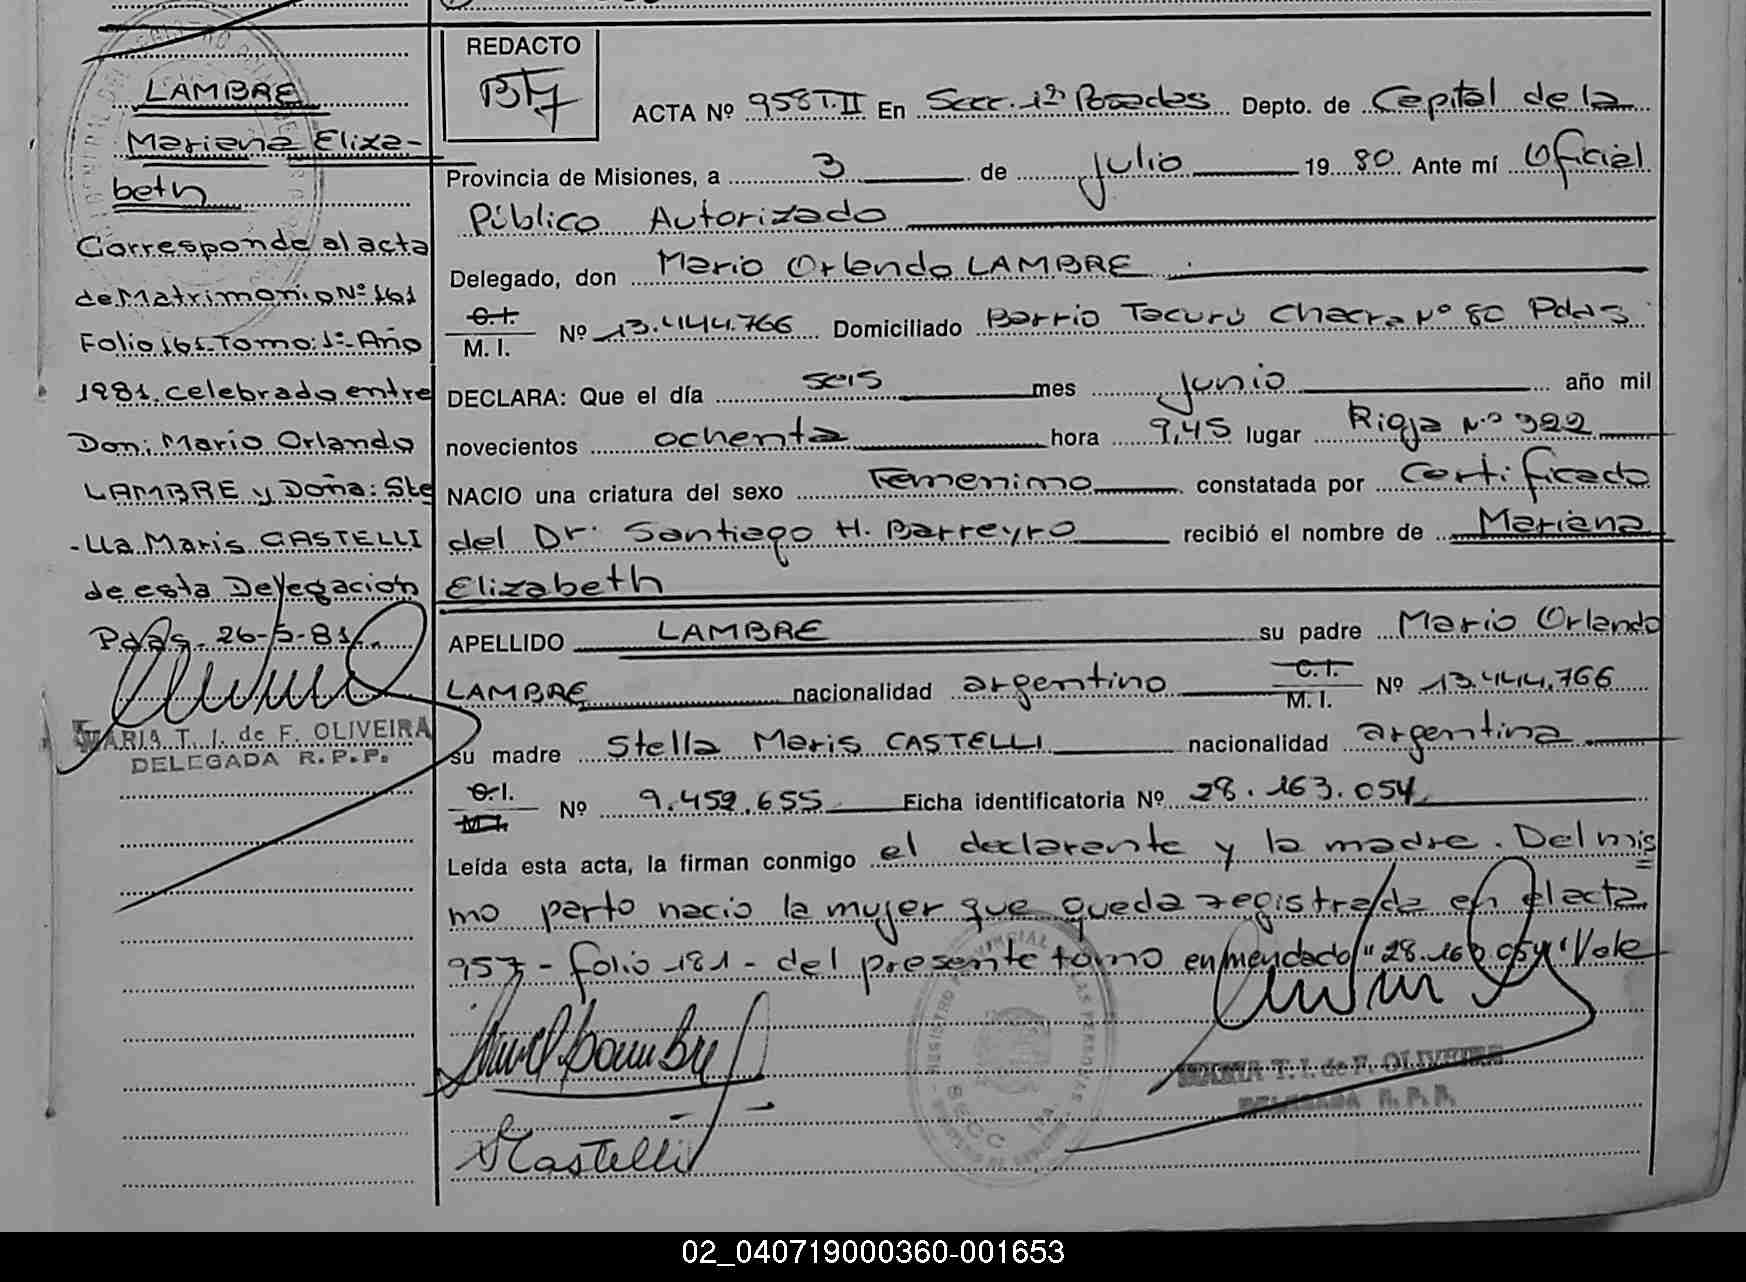 LAMBRE
Mariana Eliza-
beth
Corresponde al acta
de Matrimonio Nº 161
Folio 161 Tomo: 1º Año
1981. celebrado entre
Don: Mario Orlando
LAMBRE y Doña: Ste
-lla Maris CASTELLI
de esta Delegación
Pdas. 26-5-81.
MARIA T. I. de F. OLIVEIRA
DELEGADA R. P. P.
REDACTO
ACTA Nº 958 T. II En Secc. 1ª Posadas Depto. de Capital de la
Provincia de Misiones, a 3 de julio 19 80 Ante mí Oficial
Público Autorizado
Delegado, don Mario Orlando LAMBRE
C.I.
M. I. Nº 13.444.766 Domiciliado Barrio Tacurú Chacra Nº 80 Pdas
DECLARA: Que el día seis mes junio año mil
novecientos ochenta hora 9,45 lugar Rioja Nº 322
NACIO una criatura del sexo Femenimo constatada por Certificado
del Dr. Santiago H. Barreyro recibió el nombre de Mariana
Elizabeth
APELLIDO LAMBRE su padre Mario Orlando
LAMBRE nacionalidad argentino C.I. M. I. Nº 13.444.766
su madre Stella Maris CASTELLI nacionalidad argentina
C.I.
M.I. Nº 9.459.655 Ficha identificatoria Nº 28.163.054
Leída esta acta, la firman conmigo el declarante y la madre. Del mis
mo parto nacio la mujer que queda registrada en el acta
957 - folio 181 - del presente tomo enmendado "28.163.054" Vale
MARIA T. I. de F. OLIVEIRA
DELEGADA R. P. P.
SCastelli
02_040719000360-001653